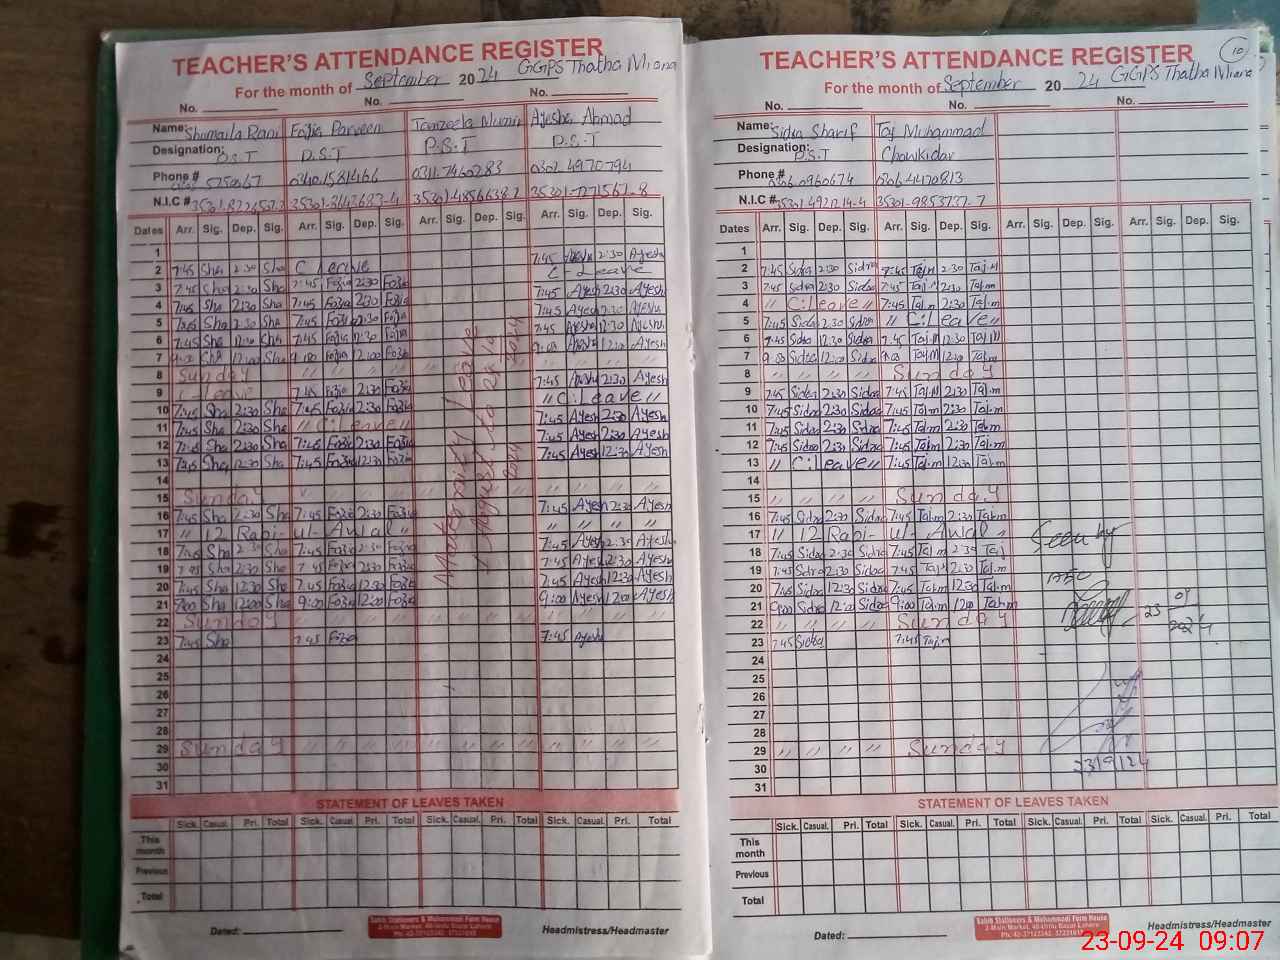 TEACHER'S ATTENDANCE REGISTER
For the month of September 2024 GGPS Thatha Miana
No. No. No.
Name: Shumaila Rani Fozia Parveen Tanzeela Munir Ayesha Ahmad
Designation: P.S.T P.S.T P.S.T P.S.T
Phone # 0311.7460283 0301.4970794
N.I.C #
Dates Arr. Sig. Dep. Sig. Arr. Sig. Dep. Sig. Arr. Sig. Dep. Sig. Arr. Sig. Dep. Sig.
1
2 7:45 Sha 2:30 Sha C Leave C-Leave
3 7:45 Sha 2:30 Sha 7:45 Fozia 2:30 Fozia
4 7:45 Sha 2:30 Sha 7:45 Fozia 2:30 Fozia 7:45 Ayesh 2:30 Ayesh
5 7:45 Sha 2:30 Sha 7:45 Fozia 2:30 Fozia 7:45 Ayesh 2:30 Ayesh
6 7:45 Sha 12:30 Sha 7:45 Fozia 12:30 Fozia 7:45 Ayesh 12:30 Ayesh
7 9:00 Sha 12:00 Sha 9:00 Fozia 12:00 Fozia 9:00 Ayesh 12:00 Ayesh
8 Sunday " " " "
9 C Leave 7:45 Fozia 2:30 Fozia 7:45 Ayesh 2:30 Ayesh
10 7:45 Sha 2:30 Sha 7:45 Fozia 2:30 Fozia " C: Leave "
11 7:45 Sha 2:30 Sha " C: Leave " 7:45 Ayesh 2:30 Ayesh
12 7:45 Sha 2:30 Sha 7:45 Fozia 2:30 Fozia 7:45 Ayesh 2:30 Ayesh
13 7:45 Sha 12:30 Sha 7:45 Fozia 12:30 Fozia 7:45 Ayesh 12:30 Ayesh
14
15 Sunday " " " "
16 7:45 Sha 2:30 Sha 7:45 Fozia 2:30 Fozia 7:45 Ayesh 2:30 Ayesh
17 " 12 Rabi-ul-Awal " " " " "
18 7:45 Sha 2:30 Sha 7:45 Fozia 2:30 Fozia 7:45 Ayesh 2:30 Ayesh
19 7:45 Sha 2:30 Sha 7:45 Fozia 2:30 Fozia 7:45 Ayesh 2:30 Ayesh
20 7:45 Sha 12:30 Sha 7:45 Fozia 12:30 Fozia 7:45 Ayesh 12:30 Ayesh
21 9:00 Sha 12:00 Sha 9:00 Fozia 12:00 Fozia 9:00 Ayesh 12:00 Ayesh
22 Sunday " " " "
23 7:45 Sha 7:45 Fozia 7:45 Ayesha
24
25
26
27
28
29 Sunday " " " "
30
31
Maternity Leave
August to
2024
STATEMENT OF LEAVES TAKEN
Sick. Casual. Pri. Total Sick. Casual. Pri. Total Sick. Casual. Pri. Total Sick. Casual. Pri. Total
This month
Previous
Total
Dated:
Sahib Stationers & Mohammadi Form House
2-Main Market, 40-Urdu Bazar Lahore
Headmistress/Headmaster
TEACHER'S ATTENDANCE REGISTER 10
For the month of September 2024 GGPS Thatha Miana
No. No. No.
Name: Sidra Sharif Taj Muhammad
Designation: P.S.T Chowkidar
Phone # 0306.0960674 0306.4470813
N.I.C # 35301-9853737-7
Dates Arr. Sig. Dep. Sig. Arr. Sig. Dep. Sig. Arr. Sig. Dep. Sig. Arr. Sig. Dep. Sig.
1
2 7:45 Sidra 2:30 Sidra 7:45 Taj.M 2:30 Taj.M
3 7:45 Sidra 2:30 Sidra 7:45 Taj.M 2:30 Taj.m
4 " C: Leave " 7:45 Taj.m 2:30 Taj.m
5 7:45 Sidra 2:30 Sidra " C: Leave "
6 7:45 Sidra 12:30 Sidra 7:45 Taj.m 12:30 Taj.M
7 9:00 Sidra 12:00 Sidra 9:00 Taj.M 12:00 Taj.m
8 " " " " Sunday
9 7:45 Sidra 2:30 Sidra 7:45 Taj.M 2:30 Taj.m
10 7:45 Sidra 2:30 Sidra 7:45 Taj.m 2:30 Taj.m
11 7:45 Sidra 2:30 Sidra 7:45 Taj.m 2:30 Taj.m
12 7:45 Sidra 2:30 Sidra 7:45 Taj.m 2:30 Taj.m
13 " C: Leave " 7:45 Taj.m 12:30 Taj.m
14
15 " " " " Sunday
16 7:45 Sidra 2:30 Sidra 7:45 Taj.m 2:30 Taj.m
17 " 12 Rabi-ul-Awal "
18 7:45 Sidra 2:30 Sidra 7:45 Taj.m 2:30 Taj
19 7:45 Sidra 2:30 Sidra 7:45 Taj.M 2:30 Taj.m
20 7:45 Sidra 12:30 Sidra 7:45 Taj.m 12:30 Taj.m
21 9:00 Sidra 12:00 Sidra 9:00 Taj.m 12:00 Taj.m
22 " " " " Sunday
23 7:45 Sidra 7:45 Taj.m
24
25
26
27
28
29 " " " " Sunday
30
31
Seen by
AEO
23/9/24
STATEMENT OF LEAVES TAKEN
Sick. Casual. Pri. Total Sick. Casual. Pri. Total Sick. Casual. Pri. Total Sick. Casual. Pri. Total
This month
Previous
Total
Dated:
Sahib Stationers & Mohammadi Form House
2-Main Market, 40-Urdu Bazar Lahore
Headmistress/Headmaster
23-09-24 09:07